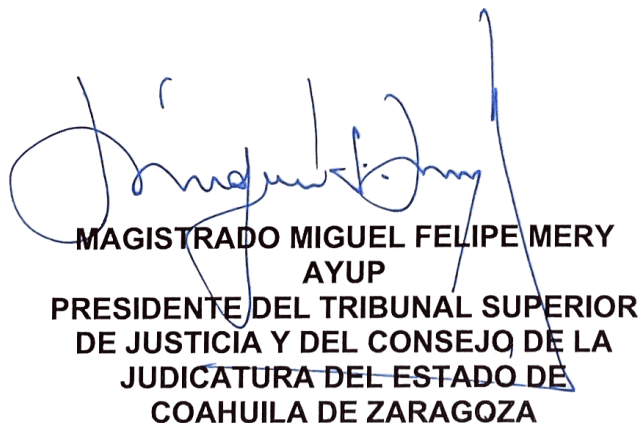 MAGISTRADO MIGUEL FELIPE MERY
AYUP
PRESIDENTE DEL TRIBUNAL SUPERIOR
DE JUSTICIA Y DEL CONSEJO DE LA
JUDICATURA DEL ESTADO DE
COAHUILA DE ZARAGOZA